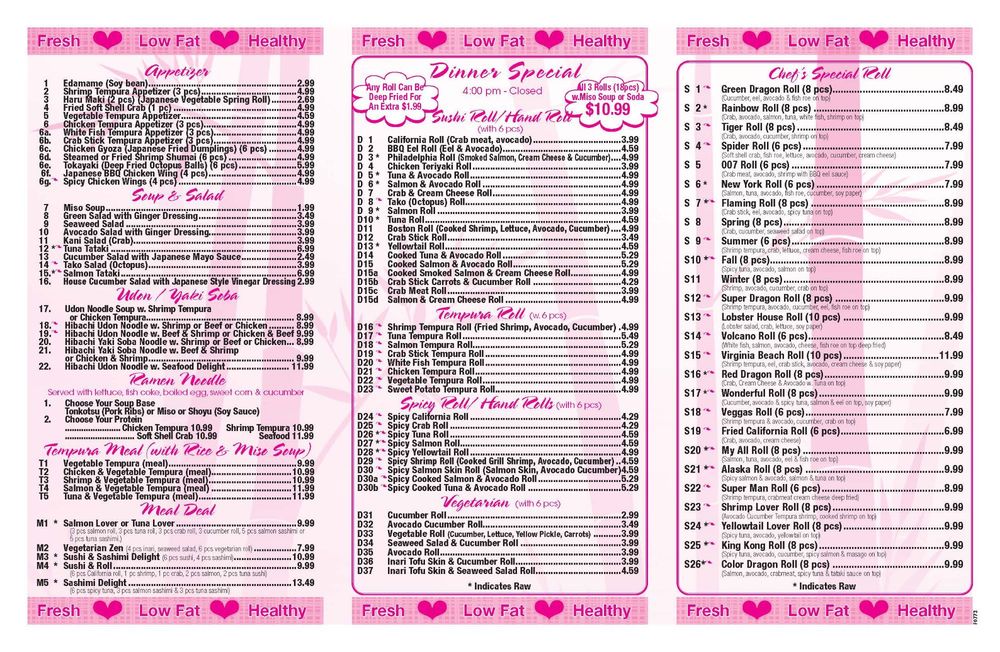 Fresh Low Fat Healthy
Appetizer
1 Edamame (Soy bean) 2.99
2 Shrimp Tempura Appetizer (3 pcs) 4.99
3 Haru Maki (2 pcs) (Japanese Vegetable Spring Roll) 2.69
4 Fried Soft Shell Crab (1 pc) 4.99
5 Vegetable Tempura Appetizer 4.59
6 Chicken Tempura Appetizer (3 pcs) 4.99
6a. White Fish Tempura Appetizer (3 pcs) 4.99
6b. Crab Stick Tempura Appetizer (3 pcs) 4.99
6c. Chicken Gyoza (Japanese Fried Dumplings) (6 pcs) 4.99
6d. Steamed or Fried Shrimp Shumai (6 pcs) 4.99
6e. Tokayaki (Deep Fried Octopus Balls) (6 pcs) 5.99
6f. Japanese BBQ Chicken Wing (4 pcs) 4.99
6g. Spicy Chicken Wings (4 pcs) 4.99
Soup & Salad
7 Miso Soup 1.99
8 Green Salad with Ginger Dressing 3.49
9 Seaweed Salad 3.99
10 Avocado Salad with Ginger Dressing 3.99
11 Kani Salad (Crab) 3.99
12 * Tuna Tataki 6.99
13 Cucumber Salad with Japanese Mayo Sauce 2.49
14 Tako Salad (Octopus) 3.99
15.* Salmon Tataki 6.99
16. House Cucumber Salad with Japanese Style Vinegar Dressing 2.99
Udon / Yaki Soba
17. Udon Noodle Soup w. Shrimp Tempura
or Chicken Tempura 8.99
18. Hibachi Udon Noodle w. Shrimp or Beef or Chicken 8.99
19. Hibachi Udon Noodle w. Beef & Shrimp or Chicken & Beef 9.99
20. Hibachi Yaki Soba Noodle w. Shrimp or Beef or Chicken... 8.99
21. Hibachi Yaki Soba Noodle w. Beef & Shrimp
or Chicken & Shrimp 9.99
22. Hibachi Udon Noodle w. Seafood Delight 11.99
Ramen Noodle
Served with lettuce, fish cake, boiled egg, sweet corn & cucumber
1. Choose Your Soup Base
Tonkotsu (Pork Ribs) or Miso or Shoyu (Soy Sauce)
2. Choose Your Protein
Chicken Tempura 10.99 Shrimp Tempura 10.99
Soft Shell Crab 10.99 Seafood 11.99
Tempura Meal (with Rice & Miso Soup)
T1 Vegetable Tempura (meal) 9.99
T2 Chicken & Vegetable Tempura (meal) 10.99
T3 Shrimp & Vegetable Tempura (meal) 10.99
T4 Salmon & Vegetable Tempura (meal) 11.99
T5 Tuna & Vegetable Tempura (meal) 11.99
Meal Deal
M1 * Salmon Lover or Tuna Lover 9.99
(3 pcs salmon roll, 3 pcs tuna roll, 3 pcs crab roll, 3 cucumber roll, 5 pcs salmon sashimi or
5 pcs tuna sashimi.)
M2 Vegetarian Zen (4 pcs inari, seaweed salad, 6 pcs vegetarian roll) 7.99
M3 * Sushi & Sashimi Delight (6 pcs sushi, 4 pcs sashimi) 10.99
M4 * Sushi & Roll 9.99
(6 pcs California roll, 1 pc shrimp, 1 pc crab, 2 pcs salmon, 2 pcs tuna sush)
M5 * Sashimi Delight 13.49
(6 pcs spicy tuna, 3 pcs salmon sashimi & 3 pcs tuna sashimi)
Fresh Low Fat Healthy
Fresh Low Fat Healthy
Dinner Special
4:00 pm - Closed
Any Roll Can Be
Deep Fried For
An Extra $1.99
All 3 Rolls (18pcs)
w.Miso Soup or Soda
$10.99
Sushi Roll/Hand Roll
(with 6 pcs)
D 1 California Roll (Crab meat, avocado) 3.99
D 2 BBQ Eel Roll (Eel & Avocado) 4.59
D 3 * Philadelphia Roll (Smoked Salmon, Cream Cheese & Cucumber) 4.99
D 4 Chicken Teriyaki Roll 3.99
D 5 * Tuna & Avocado Roll 4.99
D 6 * Salmon & Avocado Roll 4.99
D 7 Crab & Cream Cheese Roll 4.99
D 8 Tako (Octopus) Roll 4.99
D 9 * Salmon Roll 3.99
D10 * Tuna Roll 4.59
D11 Boston Roll (Cooked Shrimp, Lettuce, Avocado, Cucumber) 4.99
D12 Crab Stick Roll 3.49
D13 * Yellowtail Roll 4.59
D14 Cooked Tuna & Avocado Roll 5.29
D15 Cooked Salmon & Avocado Roll 5.29
D15a Cooked Smoked Salmon & Cream Cheese Roll 4.99
D15b Crab Stick Carrots & Cucumber Roll 4.29
D15c Crab Meat Roll 3.99
D15d Salmon & Cream Cheese Roll 4.99
Tempura Roll (w. 6 pcs)
D16 Shrimp Tempura Roll (Fried Shrimp, Avocado, Cucumber) .4.99
D17 Tuna Tempura Roll 5.49
D18 Salmon Tempura Roll 5.29
D19 Crab Stick Tempura Roll 4.99
D20 White Fish Tempura Roll 4.99
D21 Chicken Tempura Roll 4.99
D22 Vegetable Tempura Roll 4.99
D23 Sweet Potato Tempura Roll 3.99
Spicy Roll/ Hand Rolls (with 6 pcs)
D24 Spicy California Roll 4.29
D25 Spicy Crab Roll 4.29
D26 * Spicy Tuna Roll 4.59
D27 * Spicy Salmon Roll 4.59
D28 * Spicy Yellowtail Roll 4.99
D29 Spicy Shrimp Roll (Cooked Grill Shrimp, Avocado, Cucumber) 4.59
D30 Spicy Salmon Skin Roll (Salmon Skin, Avocado Cucumber)4.59
D30a Spicy Cooked Salmon & Avocado Roll 5.29
D30b Spicy Cooked Tuna & Avocado Roll 5.29
Vegetarian (with 6 pcs)
D31 Cucumber Roll 2.99
D32 Avocado Cucumber Roll 3.49
D33 Vegetable Roll (Cucumber, Lettuce, Yellow Pickle, Carrots) 3.99
D34 Seaweed Salad & Cucumber Roll 3.99
D35 Avocado Roll 3.99
D36 Inari Tofu Skin & Cucumber Roll 3.99
D37 Inari Tofu Skin & Seaweed Salad Roll 4.59
Fresh Low Fat Healthy
Fresh Low Fat Healthy
Chef's Special Roll
S 1 Green Dragon Roll (8 pcs) 8.49
(Cucumber, eel, avocado & fish roe on top)
S 2 * Rainbow Roll (8 pcs) 8.99
(Crab, avocado, salmon, tuna, white fish, shrimp on top)
S 3 Tiger Roll (8 pcs) 8.49
(Crab, avocado, cucumber, shrimp on top)
S 4 Spider Roll (6 pcs) 7.99
(Soft shell crab, fish roe, lettuce, avocado, cucumber, cream cheese)
S 5 007 Roll (6 pcs) 7.99
(Crab meat, avocado, shrimp with BBQ eel sauce)
S 6 * New York Roll (6 pcs) 7.99
(Salmon, tuna, avocado, fish roe, cucumber, soy paper)
S 7 * Flaming Roll (8 pcs) 8.99
(Crab stick, eel, avocado, spicy tuna on top)
S 8 Spring (8 pcs) 8.99
(Crab, cucumber, seaweed salad on top)
S 9 Summer (6 pcs) 8.99
(Shrimp tempura, crab, lettuce, cream cheese, fish roe on top)
S10 * Fall (8 pcs) 8.99
(Spicy tuna, avocado, salmon on top)
S11 Winter (8 pcs) 8.99
(Shrimp, avocado, cucumber, crab on top)
S12 Super Dragon Roll (8 pcs) 9.99
(Shrimp tempura, avocado, cucumber, eel, fish roe on top)
S13 Lobster House Roll (10 pcs) 9.99
(Lobster salad, crab, lettuce, soy paper)
S14 Volcano Roll (6 pcs) 8.99
(White fish, salmon, avocado, cheese, fish roe on top deep fried)
S15 Virginia Beach Roll (10 pcs) 11.99
(Shrimp tempura, eel, crab stick, avocado, cream cheese & soy paper)
S16 * Red Dragon Roll (8 pcs) 9.99
(Crab, Cream Cheese & Avocado w. Tuna on top)
S17 * Wonderful Roll (8 pcs) 9.99
(Cucumber, avocado & spicy tuna, salmon & eel on top, soy paper)
S18 Veggas Roll (6 pcs) 7.99
(Shrimp tempura & avocado, cucumber, crab on top)
S19 Fried California Roll (6 pcs) 6.99
(Crab, avocado, cream cheese)
S20 * My All Roll (8 pcs) 9.99
(Salmon, tuna, avocado, eel & fish roe on top)
S21 * Alaska Roll (8 pcs) 9.99
(Spicy salmon & avocado, salmon & tuna on top)
S22 Super Man Roll (6 pcs) 8.99
(Shrimp tempura, crabmeat cream cheese deep fried)
S23 Shrimp Lover Roll (8 pcs) 9.99
(Avocado Cucumber Tempura shrimp, cooked shrimp on top)
S24 * Yellowtail Lover Roll (8 pcs) 9.99
(Spicy tuna, avocado, yellowtail on top)
S25 * King Kong Roll (8 pcs) 9.99
(Spicy tuna, avocado, cucumber, spicy salmon & masago on top)
S26* Color Dragon Roll (8 pcs) 9.99
(Salmon, avocado, crabmeat, spicy tuna & tataki sauce on top)
* Indicates Raw
* Indicates Raw
Fresh Low Fat Healthy
16772